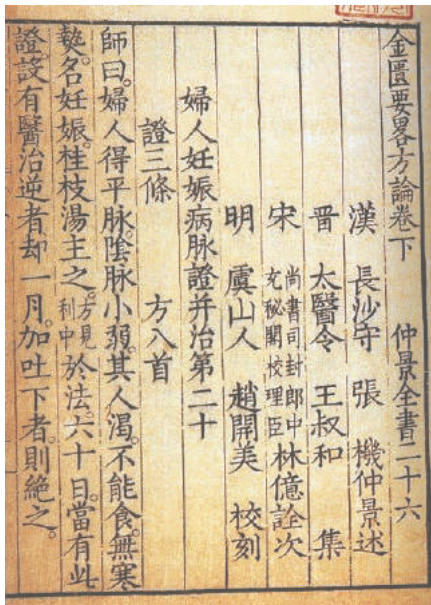 金匱要畧方論卷下　仲景全書二十六
漢　長沙守　張　機仲景述
晋　太醫令　王叔和　集
宋　尚書司封郎中充秘閣校理臣　林億詮次
明　虞山人　趙開美　校刻
婦人妊娠病脉證并治第二十
證三條　方八首
師曰。婦人得平脉。陰脉小弱。其人渴。不能食。無寒
𤍠。名妊娠。桂枝湯主之。方見利中於法。六十日。當有此
證。設有醫治逆者。却一月。加吐下者。則絶之。